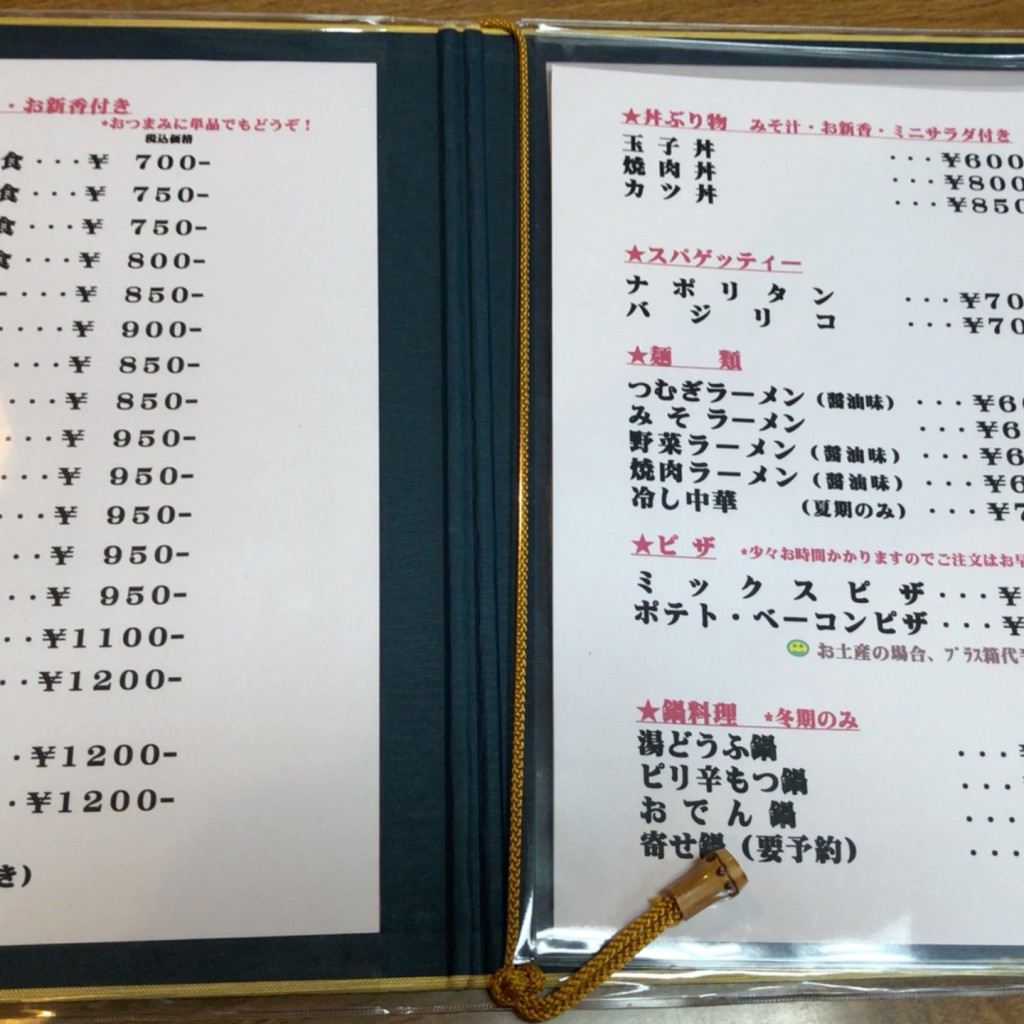 ・お新香付き
*おつまみに単品でもどうぞ！
税込価格
食・・・￥ 700-
食・・・￥ 750-
食・・・￥ 750-
食・・・￥ 800-
・・・￥ 850-
・・・・￥ 900-
・・・￥ 850-
・・・￥ 850-
・・・￥ 950-
・・・￥ 950-
・・・￥ 950-
・・・￥ 950-
・・・￥ 950-
・・￥1100-
・・￥1200-
・￥1200-
・￥1200-
き）
★丼ぶり物 みそ汁・お新香・ミニサラダ付き
玉子丼 ・・・￥600
焼肉丼 ・・・￥800
カツ丼 ・・・￥850
★スパゲッティー
ナポリタン ・・・￥70
バジリコ ・・・￥70
★麺 類
つむぎラーメン（醤油味） ・・・￥6
みそラーメン ・・・￥6
野菜ラーメン（醤油味） ・・・￥6
焼肉ラーメン（醤油味） ・・・￥6
冷し中華 （夏期のみ） ・・・￥7
★ピザ *少々お時間かかりますのでご注文はお早
ミックスピザ・・・￥
ポテト・ベーコンピザ・・・￥
お土産の場合、プラス箱代
★鍋料理 *冬期のみ
湯どうふ鍋 ・・・
ピリ辛もつ鍋 ・・・
おでん鍋 ・・・・
寄せ鍋（要予約） ・・・